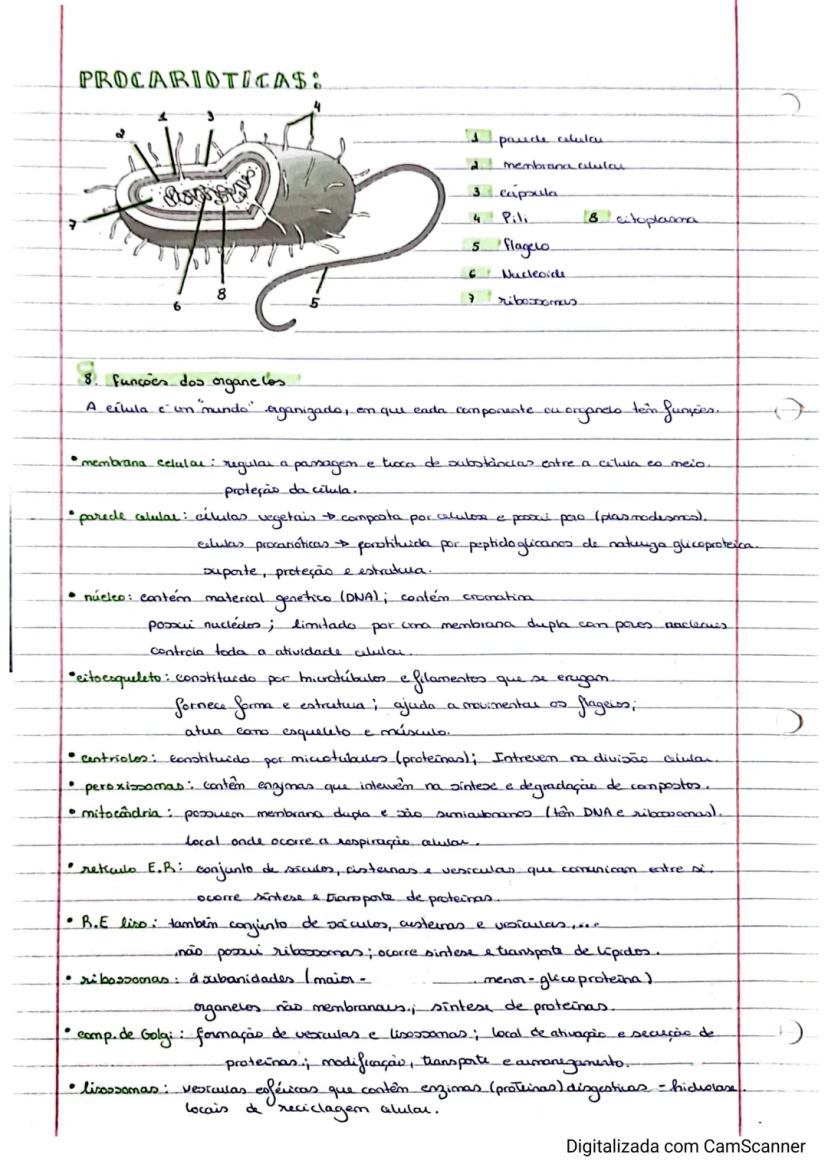 PROCARIOTICAS:
1 3 4
2
7
6 8 5
1 parede celular
2 membrana celular
3 cápsula
4 Pili 8 citoplasma
5 flagelo
6 Nucleoide
7 ribossomas
8. funções dos organelos
A célula é um "mundo" organizado, em que cada componente ou organelo têm funções.
• membrana celular: regular a passagem e troca de substâncias entre a célula e o meio.
proteção da célula.
• parede celular: células vegetais → composta por celulose e possui poro (plasmodesmos).
células procarióticas → constituida por peptidoglicanos de natureza glicoproteica.
suporte, proteção e estrutura.
• núcleo: contém material genético (DNA); contém cromatina
possui nucléolos; limitado por uma membrana dupla com poros nucleares
controla toda a atividade celular.
• citoesqueleto: constituido por microtúbulos e filamentos que se
fornece forma e estrutura; ajuda a movimentar os flagelos;
atua como esqueleto e músculo.
• centríolos: constituido por microtubulos (proteínas); Intrevem na divisão celular.
• peroxissomas: contêm enzymas que intervêm na síntese e degradação de compostos.
• mitocôndria: possuem membrana dupla e são (têm DNA e ribossomas).
local onde ocorre a respiração celular.
• retículo E.R: conjunto de sáculos, cisternas e vesículas que comunicam entre si.
ocorre síntese e transporte de proteinas.
• R.E liso: também conjunto de sáculos, cisternas e vesículas,...
não possui ribossomas; ocorre sintese e transporte de lípidos.
• ribossomas: (maior - menor - glicoproteína)
organelos não membranaus; síntese de proteínas.
• comp. de Golgi: formação de vesiculas e lisossomas; local de ativação e secreção de
proteínas; modificação, transporte e armanezamento.
• lisossomas: vesículas esféricas que contêm enzimas (proteínas) disgestivas - hidrolase.
locais de reciclagem celular.
Digitalizada com CamScanner